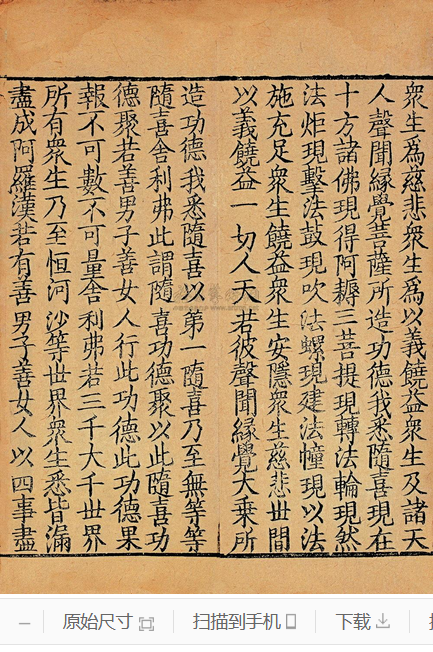 衆生為慈悲衆生為以義饒益衆生及諸天
人聲聞縁覺菩薩所造功德我悉隨喜現在
十方諸佛現得阿耨三菩提現轉法輪現然
法炬現擊法鼓現吹法螺現建法幢現以法
施充足衆生饒益衆生安隱衆生慈悲世間
以義饒益一切人天若彼聲聞縁覺大乗所
造功德我悉隨喜以第一隨喜乃至無等等
隨喜舎利弗此謂隨喜功德聚以此隨喜功
德聚若善男子善女人行此功德此功德果
報不可數不可量舎利弗若三千大千世界
所有衆生乃至恒河沙等世界衆生悉皆漏
盡成阿羅漢若有善男子善女人以四事盡
原始尺寸 扫描到手机 下载